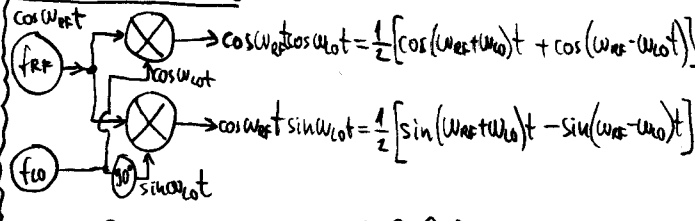 cosω_RFt
f_RF
cosω_RFtcosω_LOt=1/2[cos(ω_RF+ω_LO)t + cos(ω_RF-ω_LOt)]
cosω_LOt
cosω_RFt sinω_LOt=1/2[sin(ω_RF+ω_LO)t -sin(ω_RF-ω_LO)t]
f_LO
90°
sinω_LOt